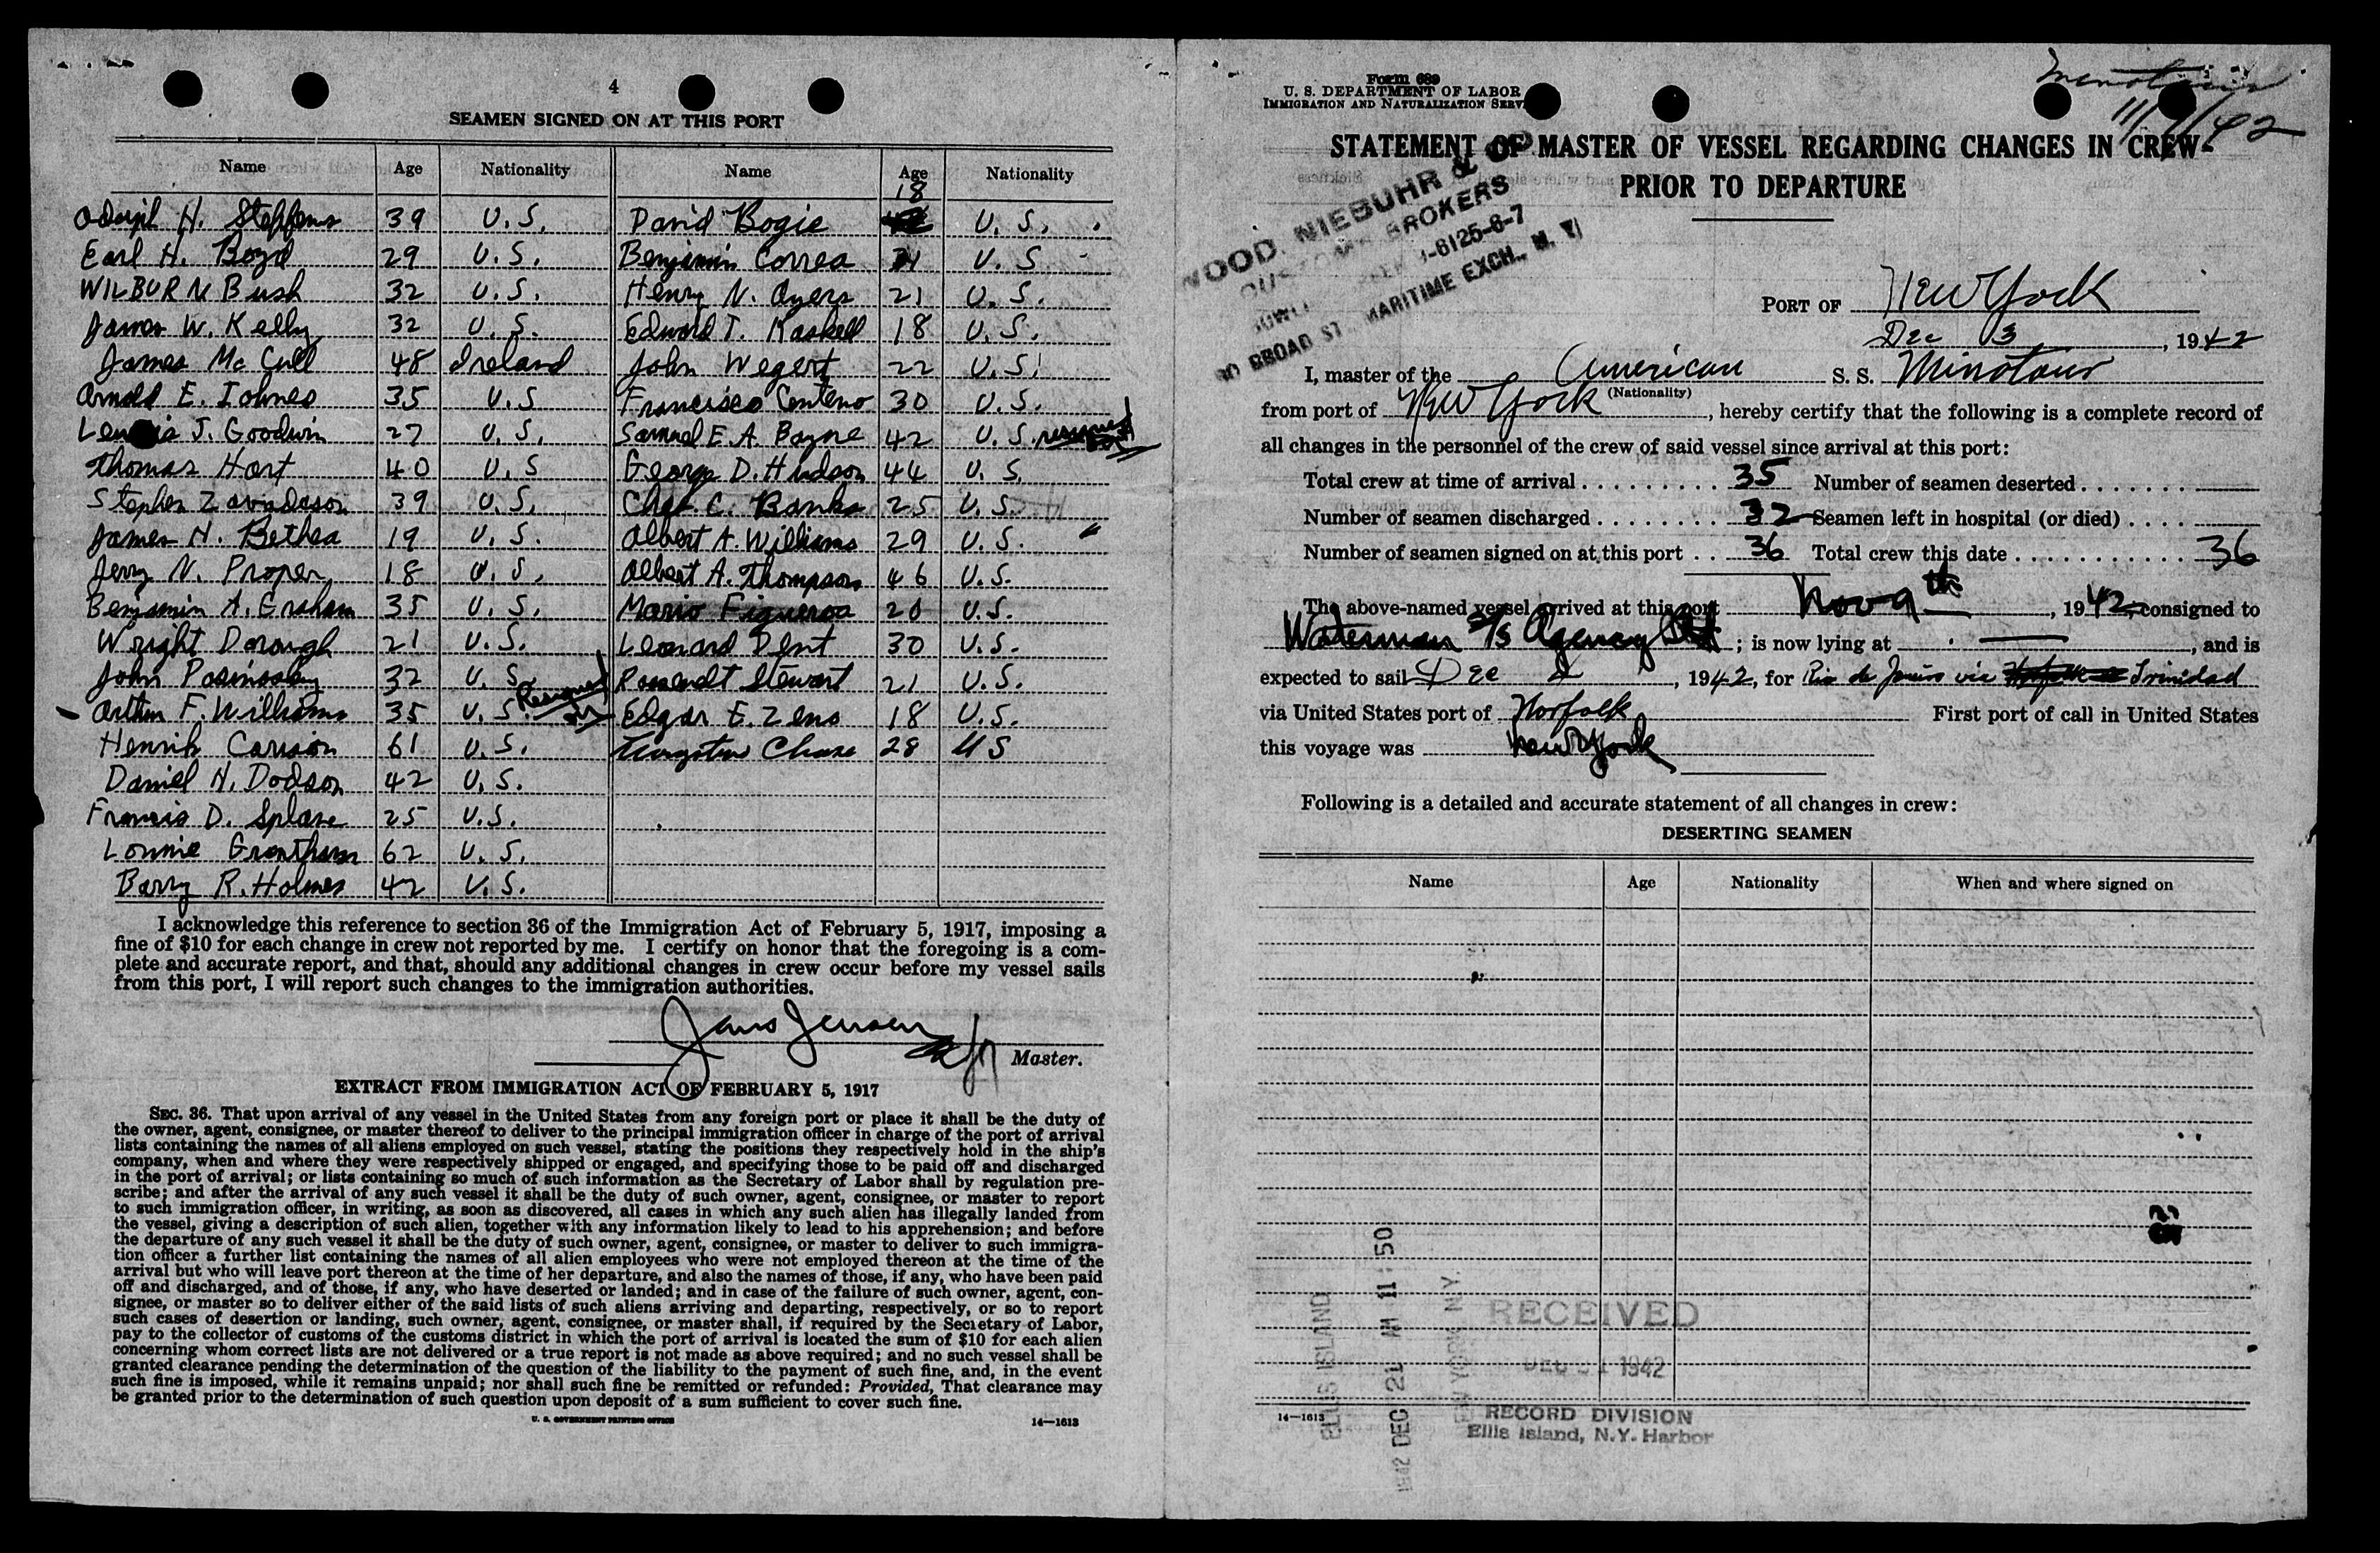 4
SEAMEN SIGNED ON AT THIS PORT
Name Age Nationality Name Age Nationality
18
H. Steffens 39 U.S. David Bogie U.S.
Earl H. Boyd 29 U.S. Benjamin Correa U.S.
WILBUR N Bush 32 U.S. Henry N. Ayers 21 U.S.
James W. Kelly 32 U.S. Edward T. Kaskell 18 U.S.
James Mc Cull 48 Ireland John Wegert 22 U.S.
Arnold E. Iohnes 35 U.S Francisco Centeno 30 U.S.
J. Goodwin 27 U.S. Samuel E. A. Bayne 42 U.S.
Thomas Hart 40 U.S George D. Hudson 44 U.S.
Stephen Zavadeson 39 U.S. C. Banks 25 U.S.
James H. Bethea 19 U.S. Albert A. Williams 29 U.S. "
Jerry N. Proper 18 U.S. Albert A. Thompson 46 U.S.
Benjamin A. Graham 35 U.S. Mario Figueroa 20 U.S.
Wright Dorough 21 U.S. Leonard Dent 30 U.S.
John 32 U.S. Roosevelt Stewart 21 U.S.
Arthur F. Williams 35 U.S. Resigned Edgar E. Zeno 18 U.S.
Henrik Carrion 61 U.S. Chase 28 US
Daniel H. Dodson 42 U.S.
Francis D. Splane 25 U.S.
Lonnie Grantham 62 U.S.
Barry R. Holmes 42 U.S.
I acknowledge this reference to section 36 of the Immigration Act of February 5, 1917, imposing a
fine of $10 for each change in crew not reported by me. I certify on honor that the foregoing is a com-
plete and accurate report, and that, should any additional changes in crew occur before my vessel sails
from this port, I will report such changes to the immigration authorities.
Jans Jensen
Master.
EXTRACT FROM IMMIGRATION ACT OF FEBRUARY 5, 1917
SEC. 36. That upon arrival of any vessel in the United States from any foreign port or place it shall be the duty of
the owner, agent, consignee, or master thereof to deliver to the principal immigration officer in charge of the port of arrival
lists containing the names of all aliens employed on such vessel, stating the positions they respectively hold in the ship's
company, when and where they were respectively shipped or engaged, and specifying those to be paid off and discharged
in the port of arrival; or lists containing so much of such information as the Secretary of Labor shall by regulation pre-
scribe; and after the arrival of any such vessel it shall be the duty of such owner, agent, consignee, or master to report
to such immigration officer, in writing, as soon as discovered, all cases in which any such alien has illegally landed from
the vessel, giving a description of such alien, together with any information likely to lead to his apprehension; and before
the departure of any such vessel it shall be the duty of such owner, agent, consignee, or master to deliver to such immigra-
tion officer a further list containing the names of all alien employees who were not employed thereon at the time of the
arrival but who will leave port thereon at the time of her departure, and also the names of those, if any, who have been paid
off and discharged, and of those, if any, who have deserted or landed; and in case of the failure of such owner, agent, con-
signee, or master so to deliver either of the said lists of such aliens arriving and departing, respectively, or so to report
such cases of desertion or landing, such owner, agent, consignee, or master shall, if required by the Secretary of Labor,
pay to the collector of customs of the customs district in which the port of arrival is located the sum of $10 for each alien
concerning whom correct lists are not delivered or a true report is not made as above required; and no such vessel shall be
granted clearance pending the determination of the question of the liability to the payment of such fine, and, in the event
such fine is imposed, while it remains unpaid; nor shall such fine be remitted or refunded: Provided, That clearance may
be granted prior to the determination of such question upon deposit of a sum sufficient to cover such fine.
U. S. GOVERNMENT PRINTING OFFICE 14—1613
Form 689
U. S. DEPARTMENT OF LABOR
IMMIGRATION AND NATURALIZATION SERV
Minotaur
11/9/42
STATEMENT OF MASTER OF VESSEL REGARDING CHANGES IN CREW
PRIOR TO DEPARTURE
WOOD, NIEBUHR & CO
BROKERS
-6125-6-7
BROAD ST. MARITIME EXCH., N. Y.
PORT OF New York
Dec 3, 1942
I, master of the American S. S. Minotaur
(Nationality)
from port of New York, hereby certify that the following is a complete record of
all changes in the personnel of the crew of said vessel since arrival at this port:
Total crew at time of arrival 35 Number of seamen deserted
Number of seamen discharged 32 Seamen left in hospital (or died)
Number of seamen signed on at this port 36 Total crew this date 36
The above-named vessel arrived at this port Nov 9th, 1942, consigned to
Waterman S/S Agency Ltd; is now lying at —, and is
expected to sail Dec, 1942, for Rio de Janiro via Trinidad
via United States port of Norfolk First port of call in United States
this voyage was New York
Following is a detailed and accurate statement of all changes in crew:
DESERTING SEAMEN
Name Age Nationality When and where signed on
ELLIS ISLAND
1942 DEC 21 AM 11 50
NEW YORK N.Y.
RECEIVED
DEC 21 1942
RECORD DIVISION
Ellis Island, N.Y. Harbor
14—1613